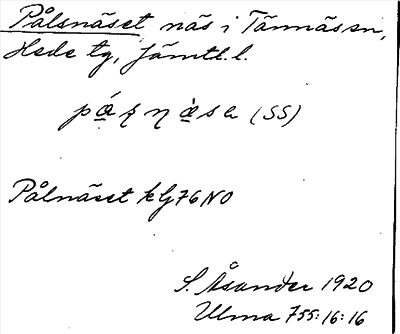 Pålsnäset, näs i Tännäs sn,
Hede tg, Jämtl. l.
(SS)
Pålnäset k G76 NO
S. Åsander 1920
Ulma 755:16:16